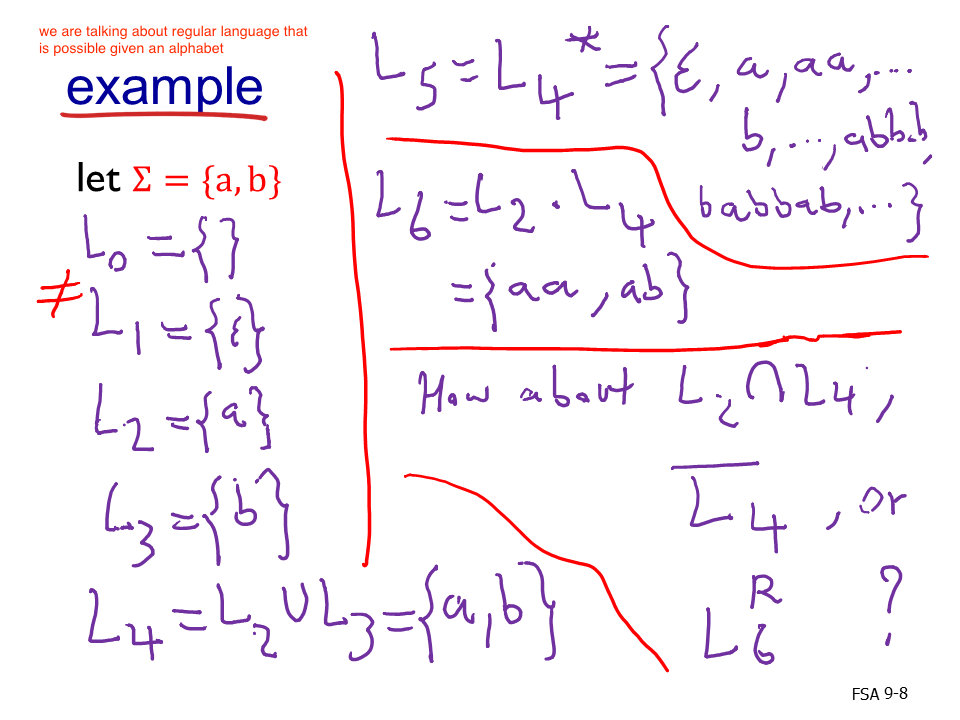 we are talking about regular language that
is possible given an alphabet
example
let Σ = {a, b}
L₀ = { }
≠
L₁ = {ε}
L₂ = {a}
L₃ = {b}
L₄ = L₂ ∪ L₃ = {a, b}
L₅ = L₄* = {ε, a, aa, ...
b, ..., abbb,
babbab, ... }
L₆ = L₂ . L₄
= {aa, ab}
How about L₂ ∩ L₄,
L̅₄, or
L₆ᴿ ?
FSA 9-8